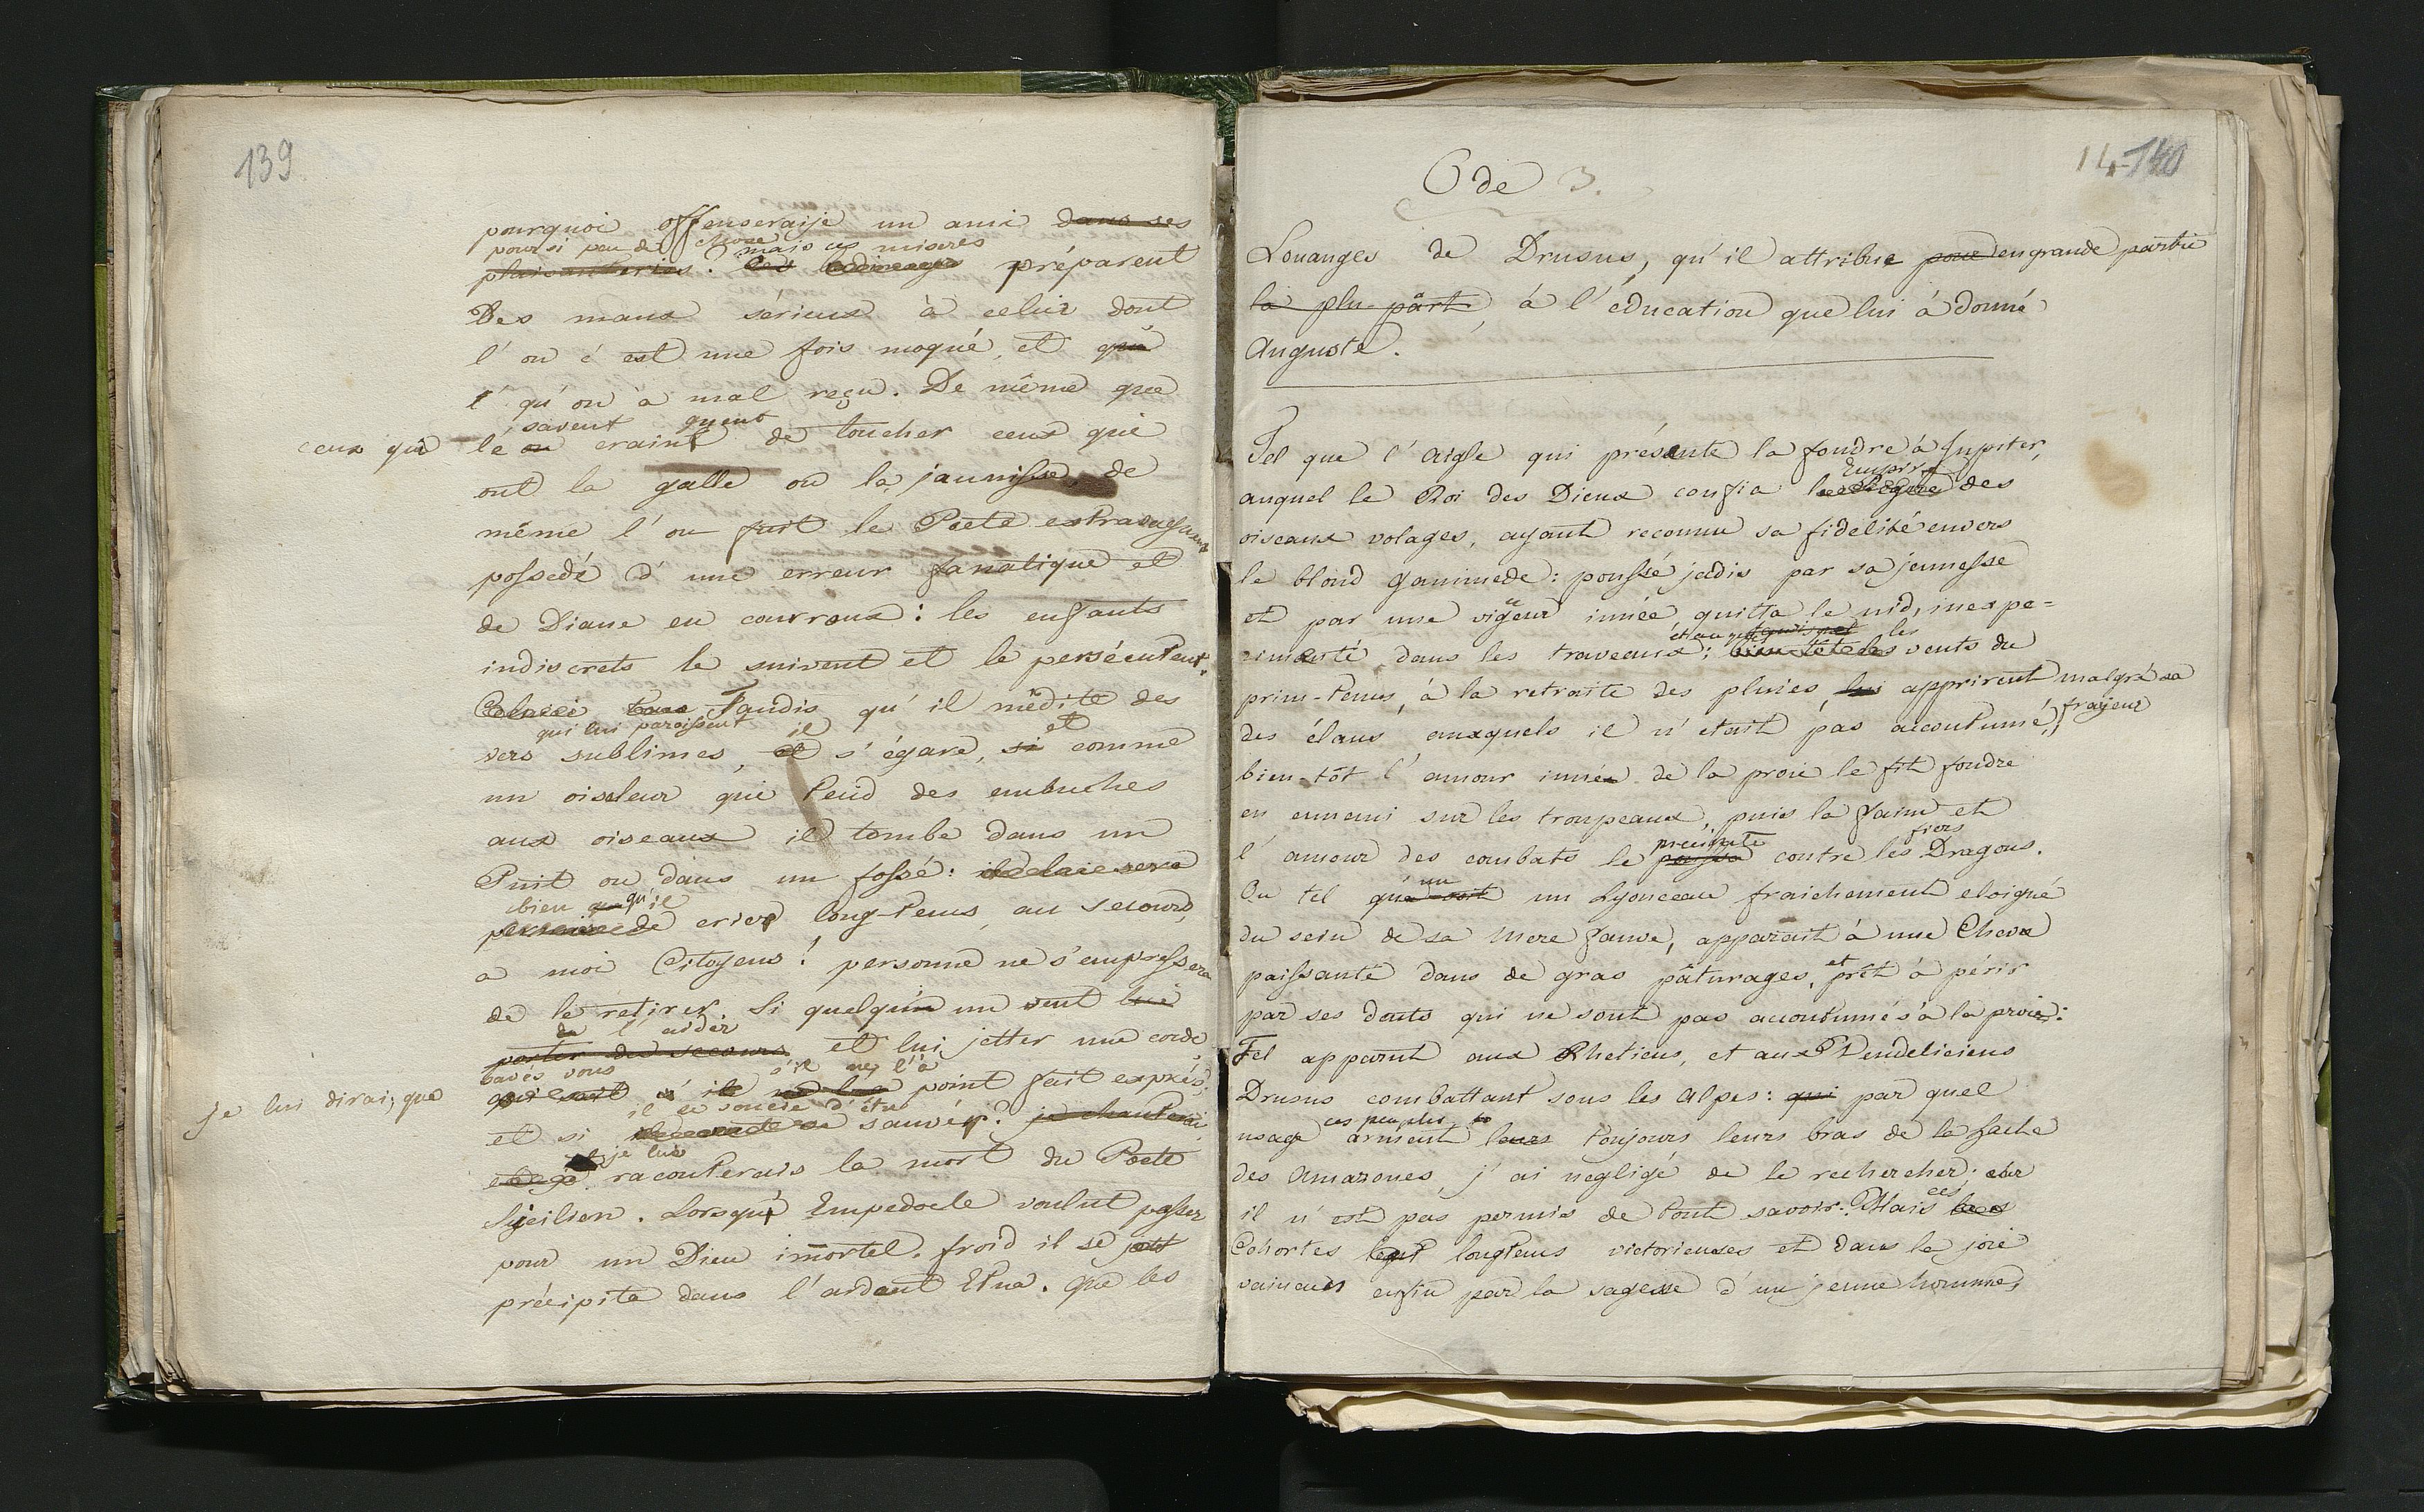 139
pourquoi offenseraije un ami dans ses
pour si peu de chose mais ces miseres
plaisanteries. les badinages préparent
Des maux sérieux à celui dont
l'on c est une fois moqué, et qui
l' qu'on à mal reçu. De même que
savent gnent
ceux qui lé on craint de toucher ceux qui
ont la galle ou la jaunisse, de
même l'on fuit le Poete extravagant
possedé d'une erreur fanatique et
de Diane en courroux: les enfants
indiscrets le suivent et le persécutent.
Tandis qu'il médite des
qui lui paroissent il et
vers sublimes, et s'égare, si comme
un oiseleur qui tend des embuches
aux oiseaux il tombe dans un
Puit ou dans un fossé:
bien qu'il
crier long-tems, au secours,
a moi Citoyens! personne ne s'empressera
de le retirer. Si quelqu'un un veut lui
de l'aider
porter du secours et lui jetter une corde
savés vous s'il ne l'à
je lui dirai, que qui sait s'il ne l'a point fait exprés,
il se soucie d'être
et si se sauvér? je chanterai
je lui
et je raconterais la mort du Poete
Sicilien. Lorsque Empedocle voulut passer
pour un Dieu immortel. froid il se jett
précipita dans l'ardent Etna. Que les
14 140
Ode 3.
Louanges de Drusus, qu'il attribue pour en grande partie
la plu-pârt à l'éducation que lui à donné
Auguste.
Tel que l'Aigle qui présente la foudre à Jupiter,
Empire
auquel le Roi des Dieux confia le Regne des
oiseaux volages, ayant reconnu sa fidelité envers
le blond Ganimede: poussé jadis par sa jeunesse
et par une vigeur innée quitta le nid, inexpe-
les
rimenté dans les traveaux; bien-tôt les vents du
prin-tems, à la retraite des pluies lui apprirent malgré sa
frayeur
des élans auxquels il n'etait pas accoutumé;
bien-tôt l'amour innée de la proie le fit fondre
en ennemi sur les troupeaux, puis la faim et
precipite fiers
l'amour des combats le poussa contre les Dragons.
un
Ou tel qu'e voit un Lyonceau fraichement eloigné
du sein de sa mere fauve, apparait à une Chevre
et
paissante dans de gras pâturages, prêt à périr
par ses dents qui ne sont pas accoutumés à la proie:
Tel apparut aux Rhetiens, et aux Vendeliciens
Drusus combattant sous les Alpes: qui par quel
ces peuples
usage arment leurs toujours leurs bras de la hache
des Amazones, j'ai negligé de le rechercher; car
ces
il n'est pas permis de tout savoir. Mais les
Cohortes longtems victorieuses et dans la joie
vaincues enfin par la sagesse d'un jeune homme,